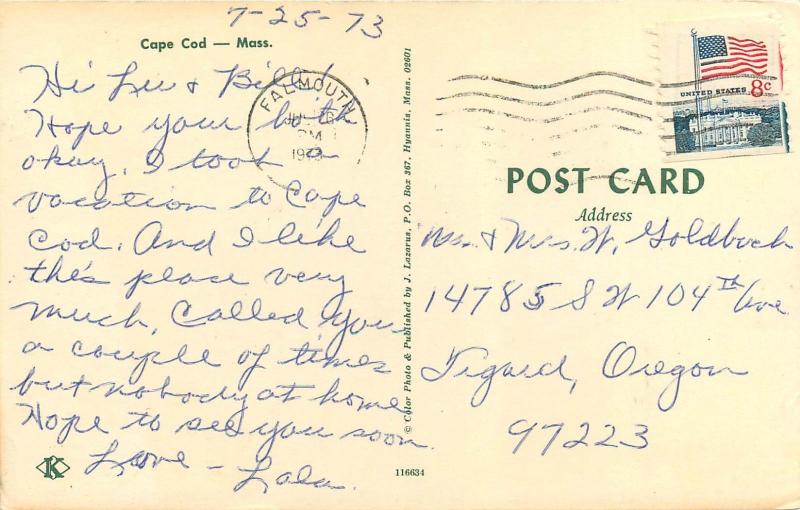 7-25-73
Cape Cod — Mass.
Hi Lu & Bill
Hope your both
okay. I took a
vacation to Cape
Cod. And I like
this place very
much. Called you
a couple of times
but nobody at home
Hope to see you soon.
Love - Lola.
K
116634
© Color Photo & Published by J. Lazarus, P.O. Box 367, Hyannis, Mass. 02601
FALMOUTH
PM
1973
UNITED STATES 8c
POST CARD
Address
Mr. & Mrs. W. Goldboch
14785 SW 104th Ave
Tigard, Oregon
97223